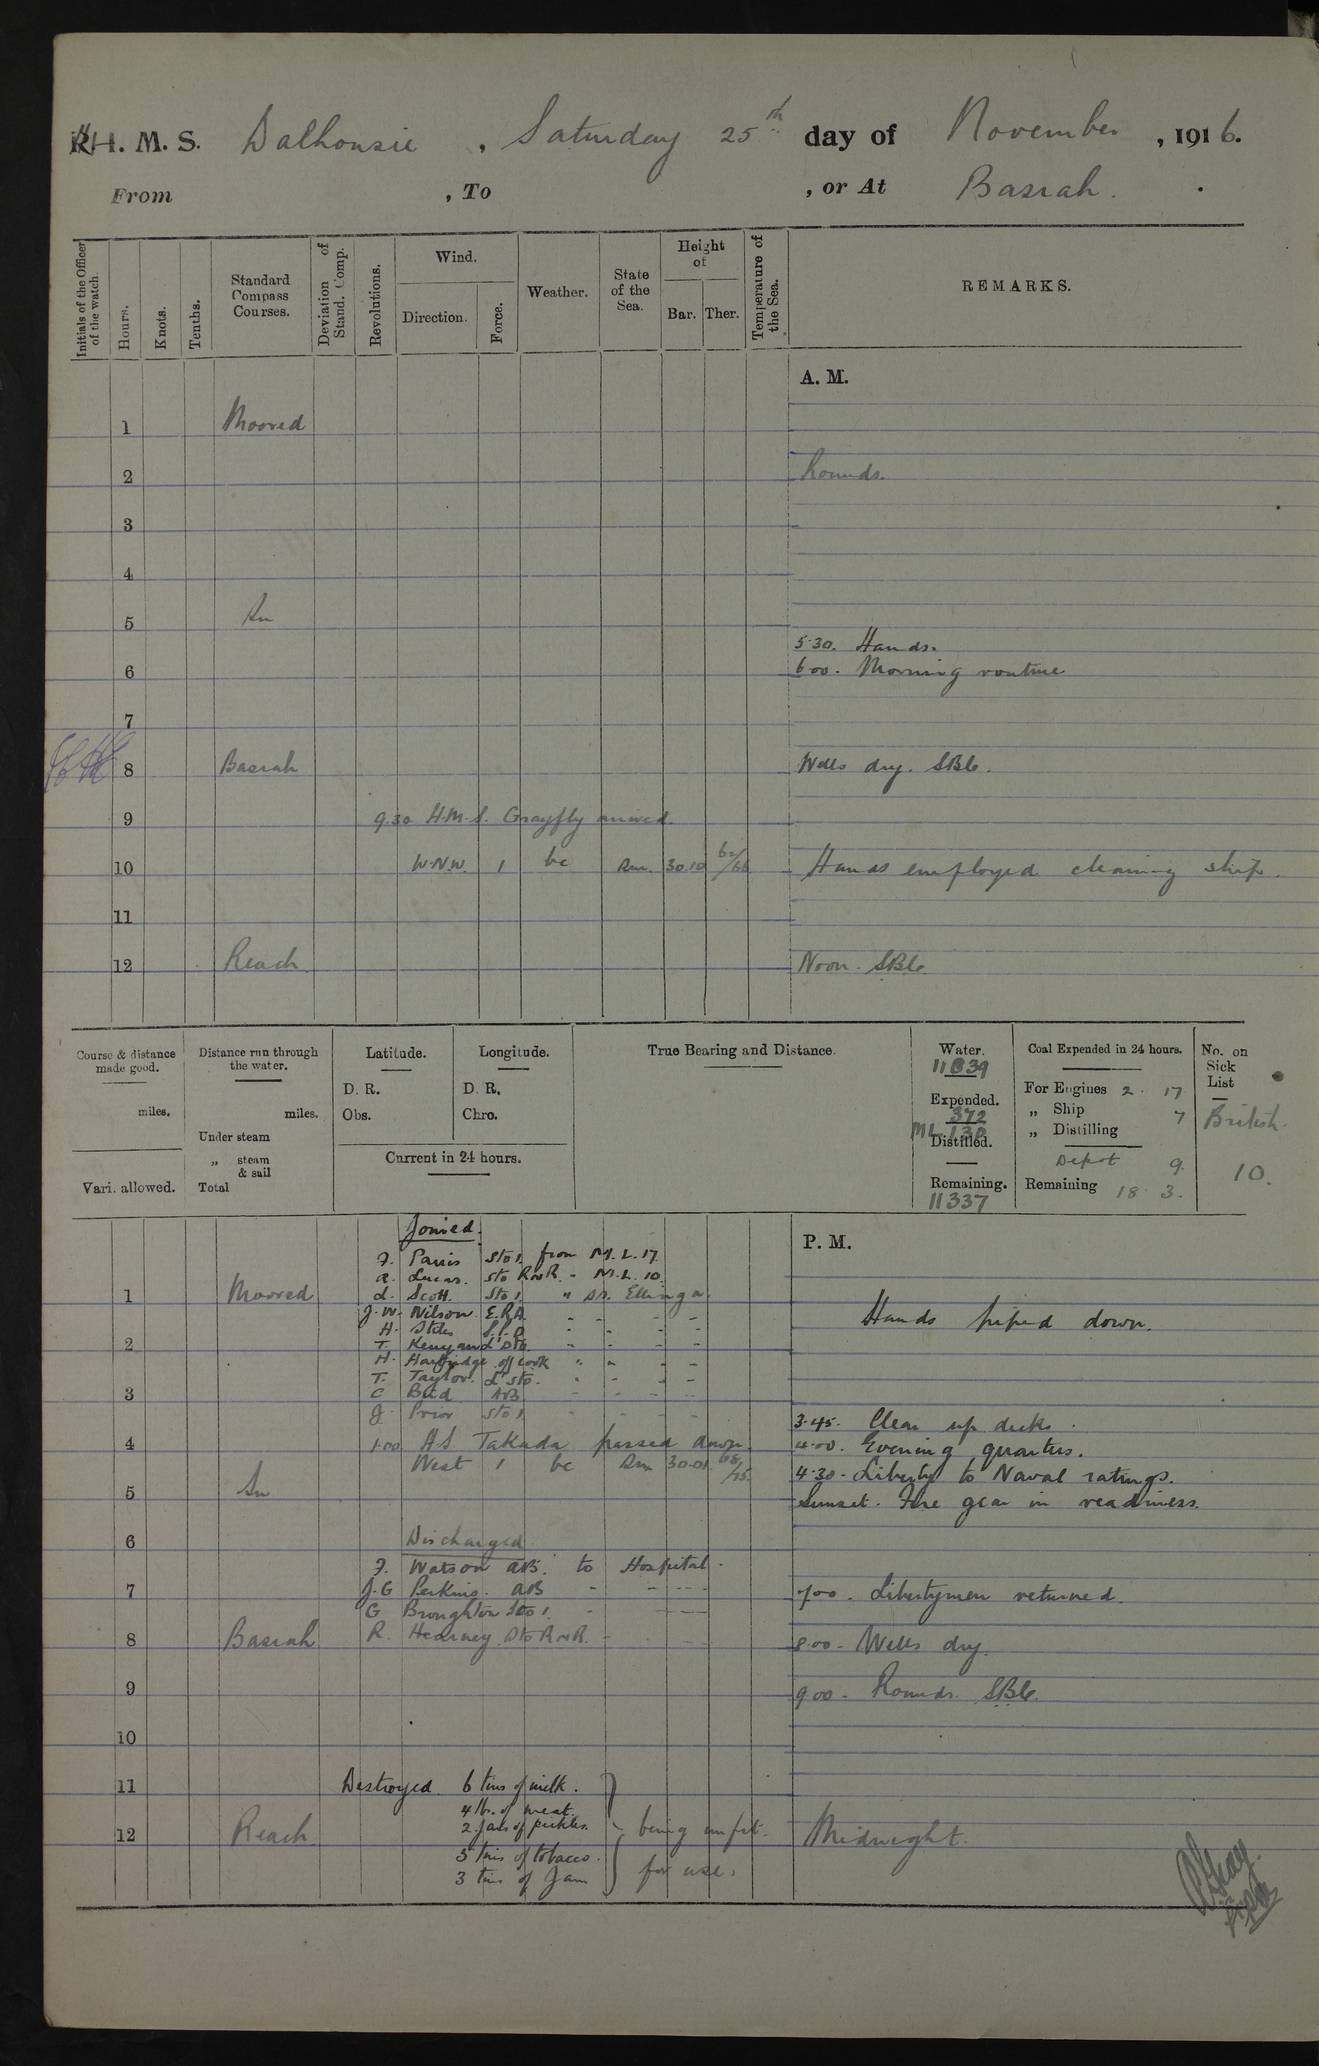 H. M. S. Dalhousie, Saturday 25th day of November, 1916.
From , To , or At Basrah.
Initials of the Officer of the watch.
Hours.
Knots.
Tenths.
Standard Compass Courses.
Deviation of Stand. Comp.
Revolutions.
Wind.
Direction.
Force.
Weather.
State of the Sea.
Height of
Bar. Ther.
Temperature of the Sea.
REMARKS.
A. M.
1 Moored
2 Rounds.
3
4
5 in
5.30. Hands.
6 6.00. Morning routine
7
8 Basrah Wells dry. SB6.
9 9.30 H.M.S. Grayfly arrived.
10 W.N.W. 1 bc Sm. 30.10 62/66 Hands employed cleaning ship.
11
12 Reach Noon. SB6
Course & distance made good.
miles.
Vari. allowed.
Distance run through the water.
miles.
Under steam
„ steam & sail
Total
Latitude.
D. R.
Obs.
Longitude.
D. R.
Chro.
Current in 24 hours.
True Bearing and Distance
Water.
11839
Expended.
372
ML 130
Distilled.
Remaining.
11337
Coal Expended in 24 hours.
For Engines 2. 17
„ Ship 7
„ Distilling
Depot 9.
Remaining 18 3.
No. on Sick List
British.
10.
Joined.
P. M.
F. Parris Sto 1. from M.L. 17
A. Lucas. Sto RNR. - M.L. 10.
1 Moored L. Scott. Sto 1. " SS. Ellenga.
J.W. Wilson. E.R.A. - - - -
Hands piped down.
H. Stiles S.P.O - - - -
2 T. Kenyand Sto. " - - -
H. Harbridge off cook " - - -
T. Taylor. L Sto. " - - -
3 C Bird AB - - - -
J. Prior Sto 1. - - - -
3.45. Clear up decks.
4 1.00 HS Takada passed down
4.00. Evening quarters.
West 1 bc Sm 30.01 68/75
4.30 - Liberty to Naval ratings.
5 in
Sunset. Fire gear in readiness.
6 Discharged
F. Watson AB. to Hospital.
7 J.G Perkins. AB - - - -
7.00. Libertymen returned.
G Broughton Sto 1. - - -
8 Basrah R. Hearney Sto RNR. -
8.00 - Wells dry.
9 9.00 - Rounds. SB6.
10
11 Destroyed. 6 tins of milk.
4 lb. of meat.
12 Reach 2 jars of pickles. being unfit Midnight.
3 tins of tobacco.
3 tins of Jam for use.